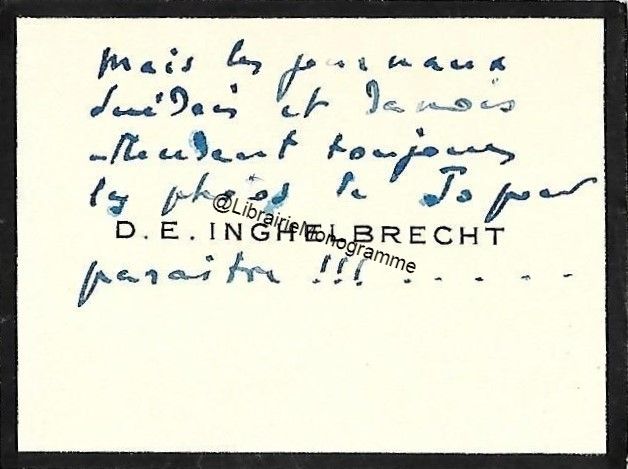 mais les journaux
suédois et danois
attendent toujours
les photos de Jo pour
@LibrairieMonogramme
D. E. INGHELBRECHT
paraître !!! . . . . .